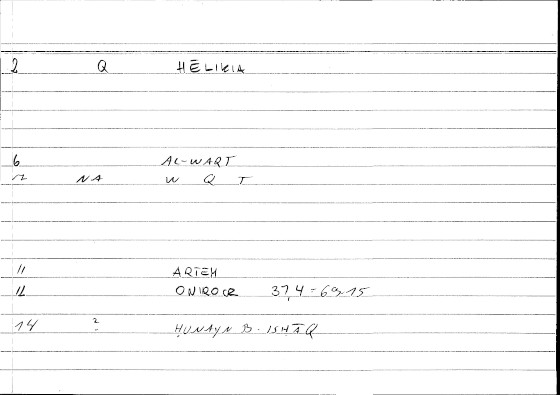 2 Q HĒLIKIA
6 AL-WAQT
NA W Q T
11 ARTEM
12 ONIROCR 37,4 = 69,15
14 ? ḤUNAYN B. ISḤĀQ